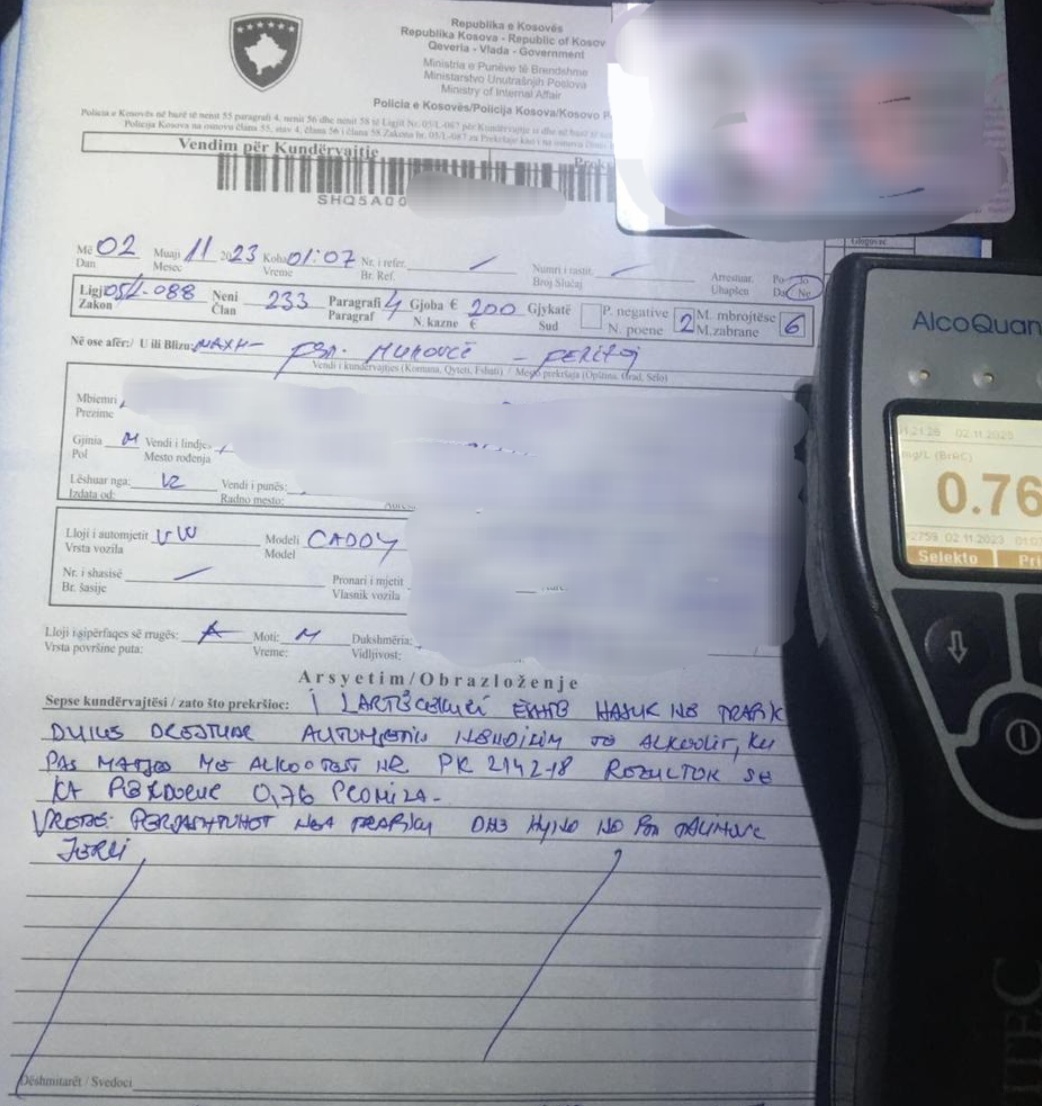 Republika e Kosovës
Republika Kosova - Republic of Kosov
Qeveria - Vlada - Government
Ministria e Punëve të Brendshme
Ministarstvo Unutrašnjih Poslova
Ministry of Internal Affair
Policia e Kosovës/Policija Kosova/Kosovo P
Policia e Kosovës në bazë të nenit 55 paragrafi 4, nenit 56 dhe nenit 58 të Ligjit Nr. 05/L-087 për Kundërvajtje
Policija Kosova na osnovu člana 55, stav 4, člana 56 i člana 58 Zakona br. 05/L-087 za Prekršaje
Vendim për Kundërvajtje
SHQ5A00
Më 02 Muaji 11 2023 Koha 01:07 Nr. i refer. Numri i rastit. Arrestuar. Po Jo
Dan Mesec Vreme Br. Ref. Broj Slučaj Uhapšen Da Ne
Ligji 05/L-088 Neni 233 Paragrafi 4 Gjoba € 200 Gjykatë P. negative 2 M. mbrojtëse 6
Zakon Član Paragraf N. kazne € Sud N. poene M.zabrane
Në ose afër:/ U ili Blizu:
Vendi i kundërvajtjes (Komuna, Qyteti, Fshati) / Mesto prekršaja (Opština, Grad, Selo)
Mbiemri
Prezime
Gjinia M Vendi i lindjes
Pol Mesto rođenja
Lëshuar nga: Vendi i punës:
Izdata od: Radno mesto:
Lloji i automjetit VW Modeli CADDY
Vrsta vozila Model
Nr. i shasisë Pronari i mjetit
Br. šasije Vlasnik vozila
Lloji i sipërfaqes së rrugës: A Moti: M Dukshmëria:
Vrsta površine puta: Vreme: Vidljivost:
Arsyetim/Obrazloženje
Sepse kundërvajtësi / zato što prekršioc: I LARTËCEKURI ËSHTË HASUR NË TRAFIK
DUKE DREJTUAR AUTOMJETIN NËN NDIKIM TË ALKOOLIT, KU
PAS MATJES ME ALKOOTEST NR PK 214218 REZULTOI SE
KA PËRDORUR 0,76 PROMILA-
VREJTJE: PERJASHTOHET NGA TRAFIKU DHE
Dëshmitarët / Svedoci
AlcoQuan
02.11.2023
mg/L (BrAC)
0.76
02.11.2023
Selekto Pri